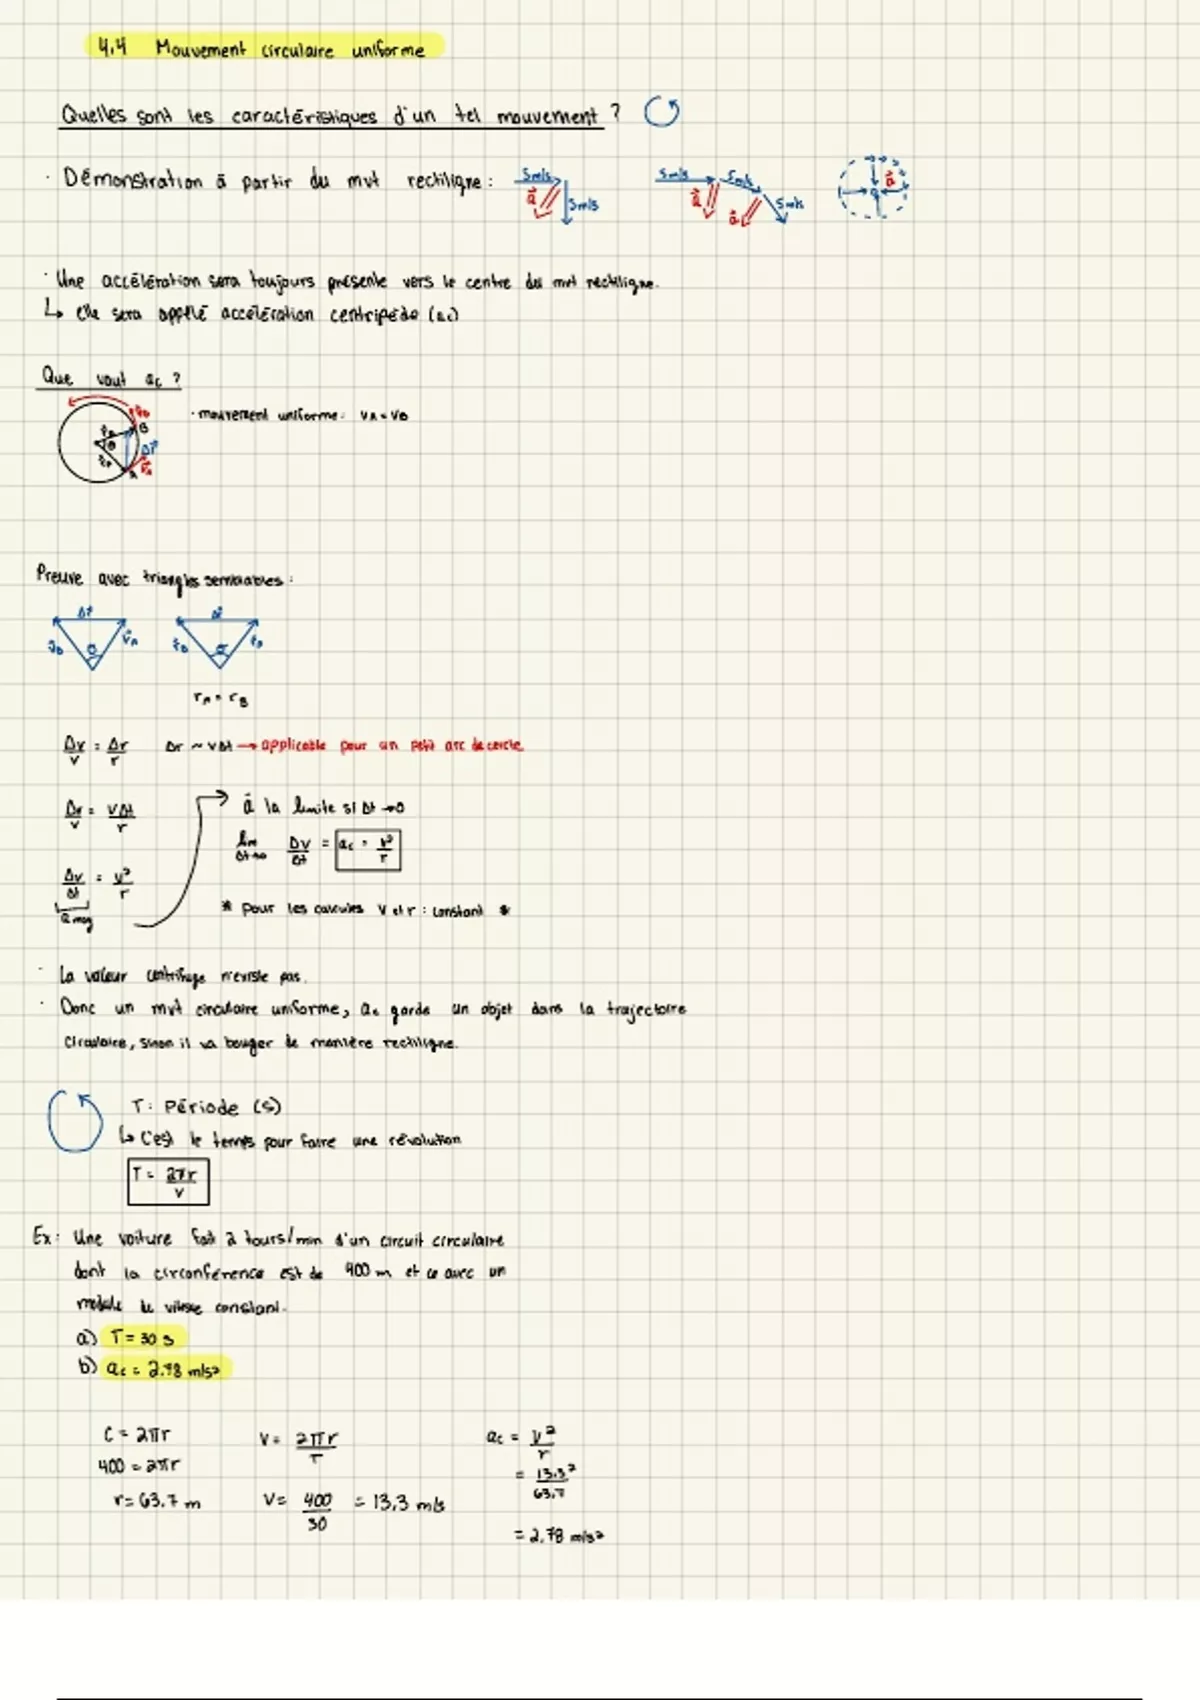 4.4 Mouvement circulaire uniforme
Quelles sont les caractéristiques d'un tel mouvement ?
· Démonstration à partir du mvt rectiligne :
5m/s
a
5m/s
5m/s
5m/s
5m/s
a
a
a
· Une accélération sera toujours présente vers le centre du mvt rectiligne.
↳ Elle sera appelé accélération centripède (ac)
Que vaut ac ?
· mouvement uniforme : vA = vB
B
θ
Δr
A
Preuve avec triangles semblables :
Δr
vB
θ
vA
rA = rB
Δv/v = Δr/r
Δr ~ vΔt → applicable pour un petit arc de cercle
Δv/v = vΔt/r
à la limite si Δt → 0
lim Δt→0 Δv/Δt = ac = v²/r
Δv/Δt = v²/r
a moy
* pour les calcules v et r : constant *
· La valeur centrifuge n'existe pas.
· Donc un mvt circulaire uniforme, ac garde un objet dans la trajectoire
circulaire, sinon il va bouger de manière rectiligne.
T : Période (s)
↳ C'est le temps pour faire une révolution
T = 2πr/v
Ex : Une voiture fait 2 tours/min d'un circuit circulaire
dont la circonférence est de 400 m et ce avec un
module de vitesse constant.
a) T = 30 s
b) ac = 2.78 m/s²
C = 2πr
400 = 2πr
r = 63.7 m
v = 2πr/T
v = 400/30 = 13,3 m/s
ac = v²/r
= 13.3²/63.7
= 2.78 m/s²